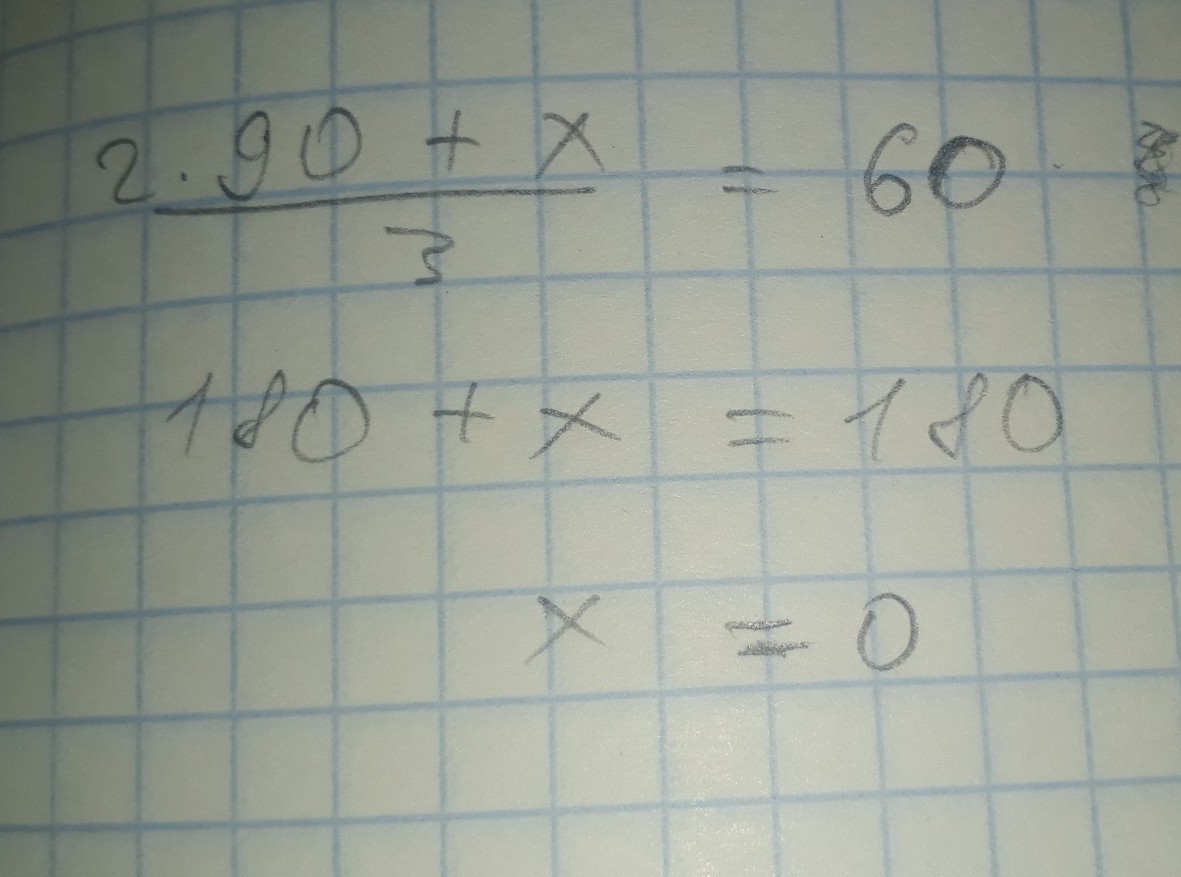 2.90 + x
3
= 60
180 + x = 180
x = 0